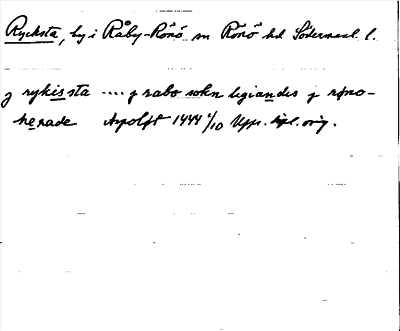 Rycksta, by i Råby-Rönö sn Rönö hd Södermanl. l.
j rykissta .... j rabo sokn legiandes j røno-
herade Aspløsø 1444 1/10 Upps. dipl. orig.